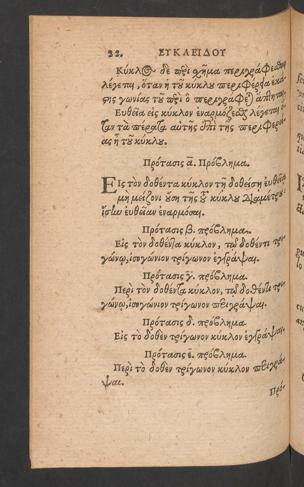 22. ΕΥΚΛΕΙΔΟΥ
Κύκλος δὲ περὶ σχῆμα περιγράφεσθαι
λέγεται, ὅταν ἡ τοῦ κύκλου περιφέρεια ἑκά-
στης γωνίας τοῦ περὶ ὃ περιγράφεται ἅπτηται.
Εὐθεῖα εἰς κύκλον ἐναρμόζεσθαι λέγεται, ὅ-
ταν τὰ πέρατα αὐτῆς ἐπὶ τῆς περιφερεί-
ας ᾖ τοῦ κύκλου.
Πρότασις α. Πρόβλημα.
Εἰς τὸν δοθέντα κύκλον τῇ δοθείσῃ εὐθείᾳ
μὴ μείζονι οὔσῃ τῆς τοῦ κύκλου διαμέτρου
ἴσην εὐθεῖαν ἐναρμόσαι.
Πρότασις β. πρόβλημα.
Εἰς τὸν δοθέντα κύκλον, τῷ δοθέντι τρι-
γώνῳ, ἰσογώνιον τρίγωνον ἐγγράψαι.
Πρότασις γ. πρόβλημα.
Περὶ τὸν δοθέντα κύκλον, τῷ δοθέντι τρι-
γώνῳ, ἰσογώνιον τρίγωνον περιγράψαι.
Πρότασις δ. πρόβλημα.
Εἰς τὸ δοθὲν τρίγωνον κύκλον ἐγγράψαι.
Πρότασις ε. πρόβλημα.
Περὶ τὸ δοθὲν τρίγωνον κύκλον περιγρά-
ψαι.
Πρό-